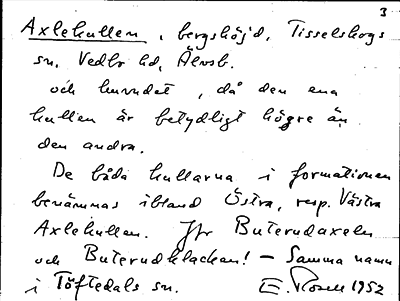 3
Axlekullen, bergshöjd, Tisselskogs
sn, Vedbo hd, Älvsb.
och huvudet, då den ena
kullen är betydligt högre än
den andra.
De båda kullarna i formationen
benämnas ibland Östra, resp. Västra
Axlekullen. Jfr Buterudaxeln
och Buterudklacken! – Samma namn
i Töftedals sn. E. Rosell 1952